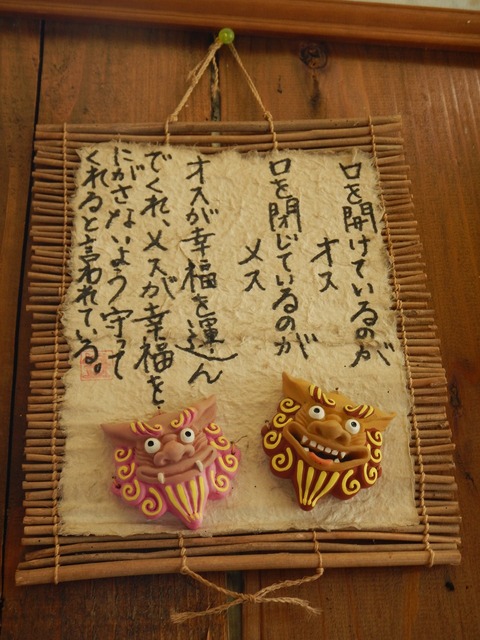 口を開けているのが
オス
口を閉じているのが
メス
オスが幸福を運ん
でくれ、メスが幸福を
にがさないよう守って
くれると言われている。